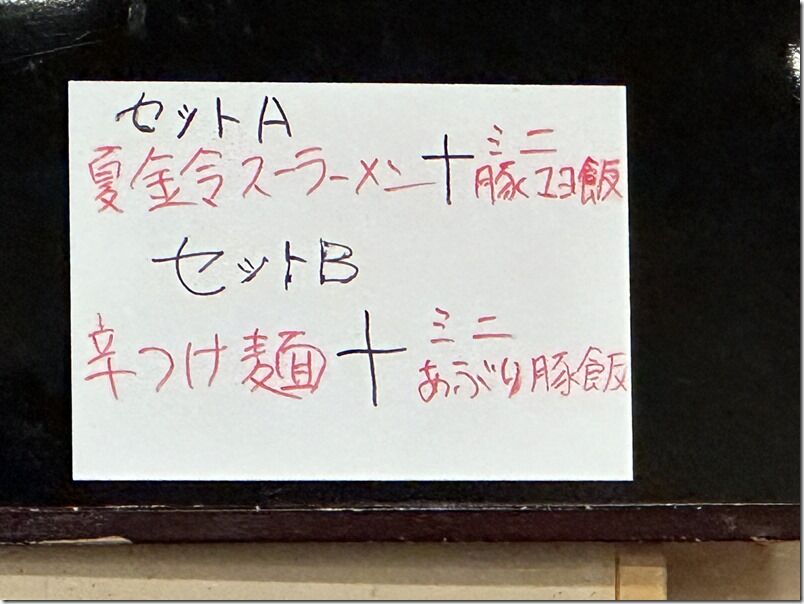 セットA
夏金令スーラーメン+ミニ豚マヨ飯
セットB
辛つけ麺+ミニあぶり豚飯